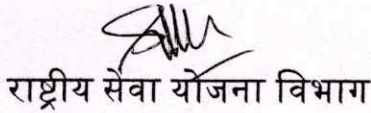 राष्ट्रीय सेवा योजना विभाग